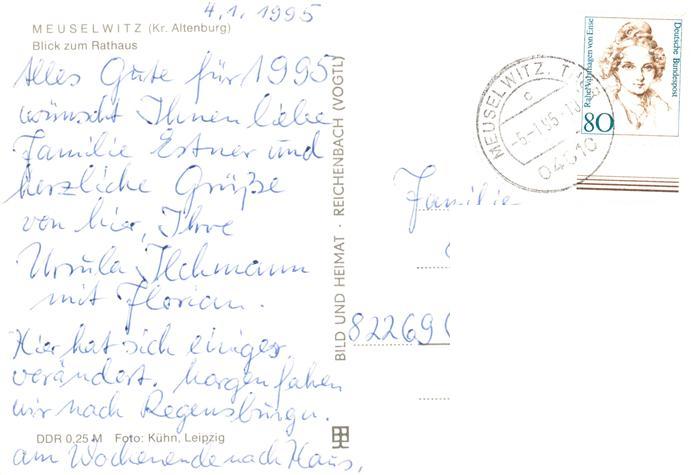 4.1.1995
MEUSELWITZ (Kr. Altenburg)
Blick zum Rathaus
Alles Gute für 1995
wünscht Ihnen liebe
Familie Estner und
herzliche Grüße
von hier, Ihre
Ursula Ilchmann
mit Florian.
Hier hat sich einiges
verändert. Morgen fahren
wir nach Regensburg u.
am Wochenende nach Haus,
DDR 0,25 M Foto: Kühn, Leipzig
BILD UND HEIMAT · REICHENBACH (VOGTL)
MEUSELWITZ, T
c
-5-1.95-10
04610
Rahel Varnhagen von Ense
Deutsche Bundespost
80
Familie
82269